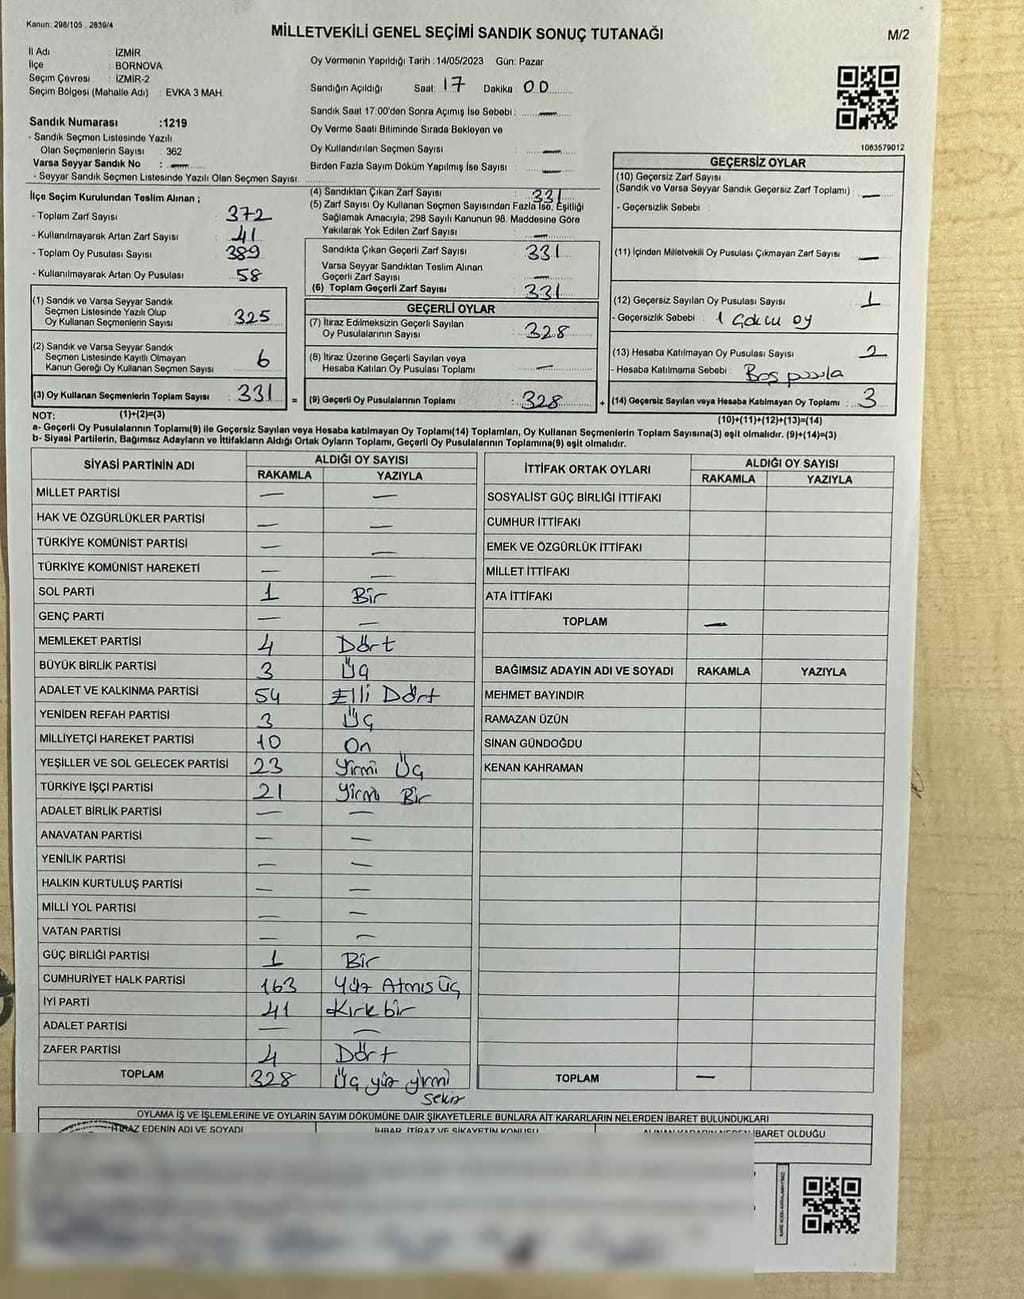 Kanun: 298/105 , 2839/4
MİLLETVEKİLİ GENEL SEÇİMİ SANDIK SONUÇ TUTANAĞI
M/2
İl Adı : İZMİR
İlçe : BORNOVA
Seçim Çevresi : İZMİR-2
Seçim Bölgesi (Mahalle Adı) : EVKA 3 MAH.
Sandık Numarası :1219
- Sandık Seçmen Listesinde Yazılı
Olan Seçmenlerin Sayısı : 362
Varsa Seyyar Sandık No : —
- Seyyar Sandık Seçmen Listesinde Yazılı Olan Seçmen Sayısı
Oy Vermenin Yapıldığı Tarih :14/05/2023 Gün: Pazar
Sandığın Açıldığı Saat: 17 Dakika : 00
Sandık Saat 17:00'den Sonra Açılmış İse Sebebi : —
Oy Verme Saati Bitiminde Sırada Bekleyen ve
Oy Kullandırılan Seçmen Sayısı —
Birden Fazla Sayım Döküm Yapılmış İse Sayısı —
1083579012
İlçe Seçim Kurulundan Teslim Alınan ;
- Toplam Zarf Sayısı : 372
- Kullanılmayarak Artan Zarf Sayısı : 41
- Toplam Oy Pusulası Sayısı : 389
- Kullanılmayarak Artan Oy Pusulası : 58
(1) Sandık ve Varsa Seyyar Sandık
Seçmen Listesinde Yazılı Olup
Oy Kullanan Seçmenlerin Sayısı : 325
(2) Sandık ve Varsa Seyyar Sandık
Seçmen Listesinde Kayıtlı Olmayan
Kanun Gereği Oy Kullanan Seçmen Sayısı : 6
(3) Oy Kullanan Seçmenlerin Toplam Sayısı : 331 =
(4) Sandıktan Çıkan Zarf Sayısı : 331
(5) Zarf Sayısı Oy Kullanan Seçmen Sayısından Fazla İse, Eşitliği
Sağlamak Amacıyla; 298 Sayılı Kanunun 98. Maddesine Göre
Yakılarak Yok Edilen Zarf Sayısı : —
Sandıkta Çıkan Geçerli Zarf Sayısı : 331
Varsa Seyyar Sandıktan Teslim Alınan
Geçerli Zarf Sayısı : —
(6) Toplam Geçerli Zarf Sayısı : 331
GEÇERLİ OYLAR
(7) İtiraz Edilmeksizin Geçerli Sayılan
Oy Pusulalarının Sayısı : 328
(8) İtiraz Üzerine Geçerli Sayılan veya
Hesaba Katılan Oy Pusulası Toplamı : —
(9) Geçerli Oy Pusulalarının Toplamı : 328 +
GEÇERSİZ OYLAR
(10) Geçersiz Zarf Sayısı
(Sandık ve Varsa Seyyar Sandık Geçersiz Zarf Toplamı) : —
- Geçersizlik Sebebi :
(11) İçinden Milletvekili Oy Pusulası Çıkmayan Zarf Sayısı : —
(12) Geçersiz Sayılan Oy Pusulası Sayısı : 1
- Geçersizlik Sebebi : 1 Çoklu oy
(13) Hesaba Katılmayan Oy Pusulası Sayısı : 2
- Hesaba Katılmama Sebebi : Boş pusula
(14) Geçersiz Sayılan veya Hesaba Katılmayan Oy Toplamı : 3
NOT: (1)+(2)=(3)
(10)+(11)+(12)+(13)=(14)
a- Geçerli Oy Pusulaları Toplamı(9) ile Geçersiz Sayılan veya Hesaba katılmayan Oy Toplamı(14) Toplamları, Oy Kullanan Seçmenlerin Toplam Sayısına(3) eşit olmalıdır. (9)+(14)=(3)
b- Siyasi Partilerin, Bağımsız Adayların ve İttifakların Aldığı Ortak Oyların Toplamı, Geçerli Oy Pusulalarının Toplamına(9) eşit olmalıdır.
SİYASİ PARTİNİN ADI ALDIĞI OY SAYISI
RAKAMLA YAZIYLA
MİLLET PARTİSİ — —
HAK VE ÖZGÜRLÜKLER PARTİSİ — —
TÜRKİYE KOMÜNİST PARTİSİ — —
TÜRKİYE KOMÜNİST HAREKETİ — —
SOL PARTİ 1 Bir
GENÇ PARTİ — —
MEMLEKET PARTİSİ 4 Dört
BÜYÜK BİRLİK PARTİSİ 3 Üç
ADALET VE KALKINMA PARTİSİ 54 Elli Dört
YENİDEN REFAH PARTİSİ 3 Üç
MİLLİYETÇİ HAREKET PARTİSİ 10 On
YEŞİLLER VE SOL GELECEK PARTİSİ 23 Yirmi Üç
TÜRKİYE İŞÇİ PARTİSİ 21 Yirmi Bir
ADALET BİRLİK PARTİSİ — —
ANAVATAN PARTİSİ — —
YENİLİK PARTİSİ — —
HALKIN KURTULUŞ PARTİSİ — —
MİLLİ YOL PARTİSİ — —
VATAN PARTİSİ — —
GÜÇ BİRLİĞİ PARTİSİ 1 Bir
CUMHURİYET HALK PARTİSİ 163 Yüz Atmış Üç
İYİ PARTİ 41 Kırk bir
ADALET PARTİSİ — —
ZAFER PARTİSİ 4 Dört
TOPLAM 328 Üç yüz yirmi
sekiz
İTTİFAK ORTAK OYLARI ALDIĞI OY SAYISI
RAKAMLA YAZIYLA
SOSYALİST GÜÇ BİRLİĞİ İTTİFAKI
CUMHUR İTTİFAKI
EMEK VE ÖZGÜRLÜK İTTİFAKI
MİLLET İTTİFAKI
ATA İTTİFAKI
TOPLAM —
BAĞIMSIZ ADAYIN ADI VE SOYADI RAKAMLA YAZIYLA
MEHMET BAYINDIR
RAMAZAN ÜZÜN
SİNAN GÜNDOĞDU
KENAN KAHRAMAN
TOPLAM —
OYLAMA İŞ VE İŞLEMLERİNE VE OYLARIN SAYIM DÖKÜMÜNE DAİR ŞİKAYETLERLE BUNLARA AİT KARARLARIN NELERDEN İBARET BULUNDUKLARI
İTİRAZ EDENİN ADI VE SOYADI İHBAR, İTİRAZ VE ŞİKAYETİN KONUSU ALINAN KARARIN NEDEN İBARET OLDUĞU